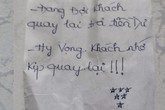 - Đang Đợi khách
quay lại trả tiền Dư
- Hy Vọng khách nhớ
kịp quay lại !!!